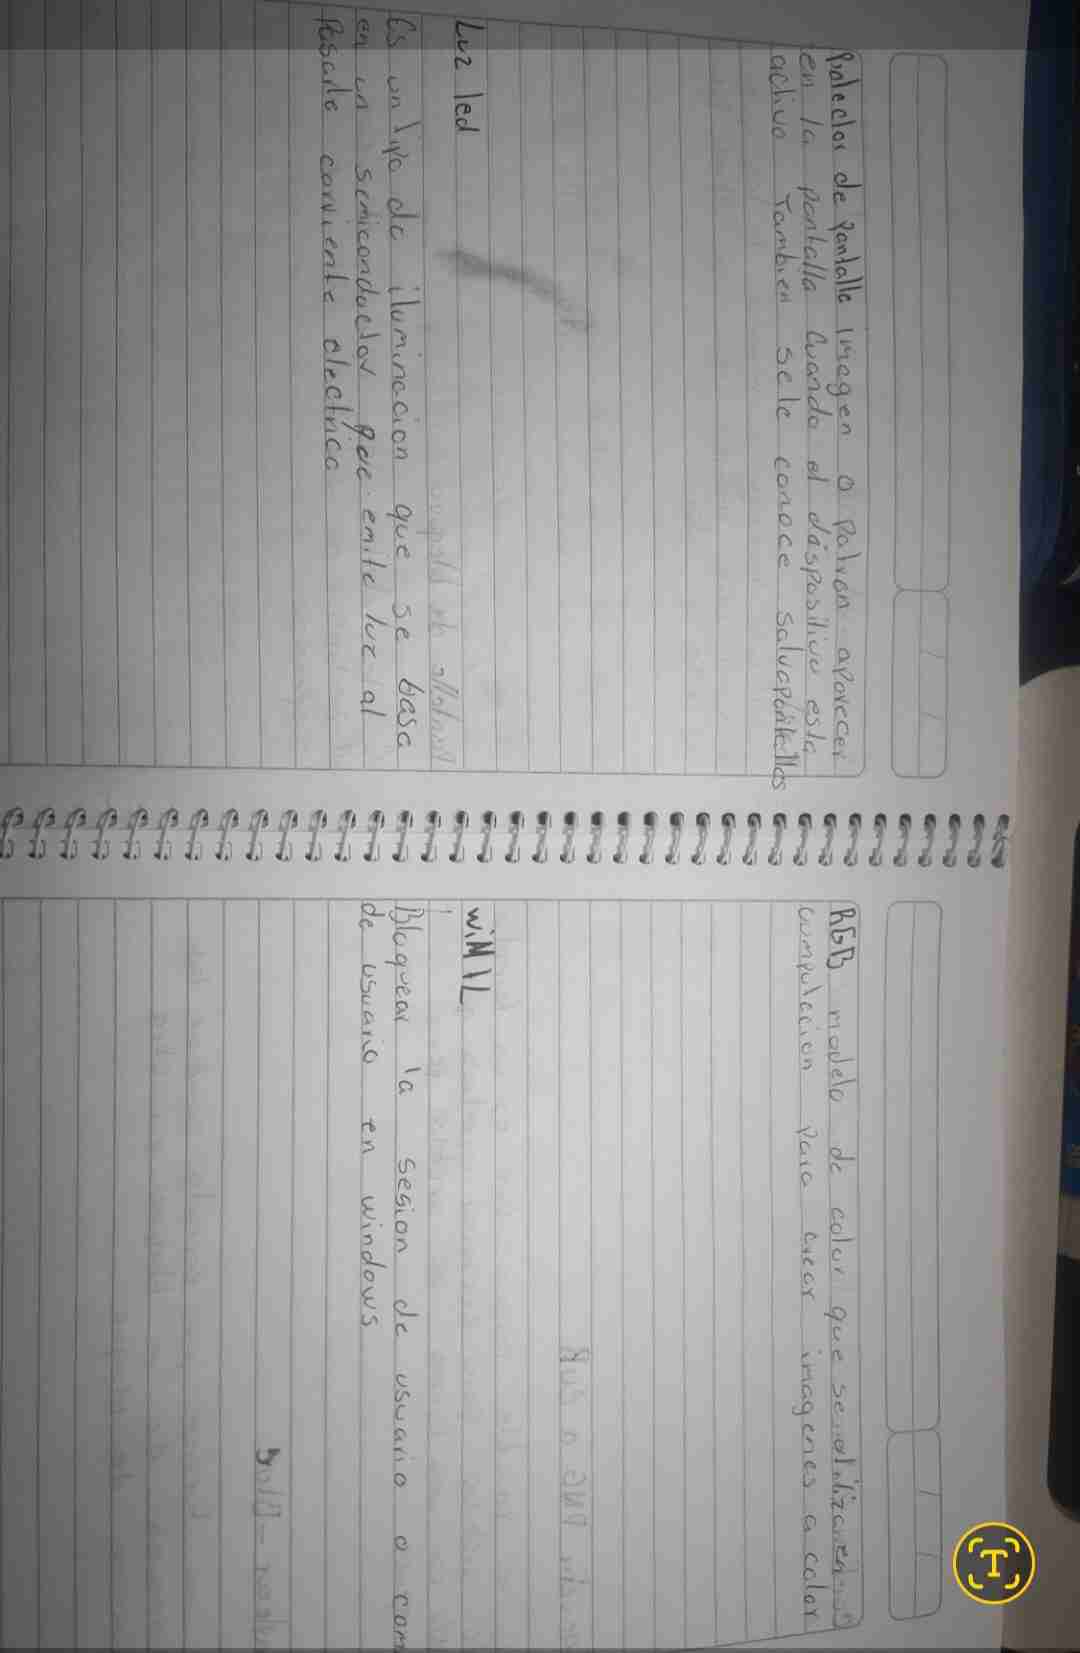 Protector de Pantalla Imagen o Patron aparecer
en la pantalla cuando el dispositivo esta
activo Tambien se le conoce salvapantallas
Luz led
Es un tipo de iluminacion que se basa
en un semiconductor que emite luz al
Pasarle corriente electrica
RGB modelo de color que se utiliza en
computacion para crear imagenes a color
wiN | L
Bloquear la sesion de usuario o com
de usuario en windows